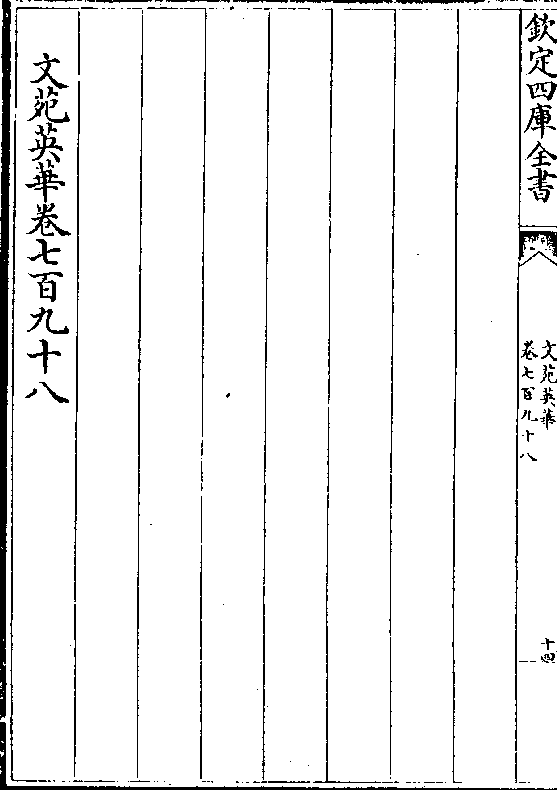 欽定四庫全書
文苑英華
卷七百九十八
十四
文苑英華卷七百九十八